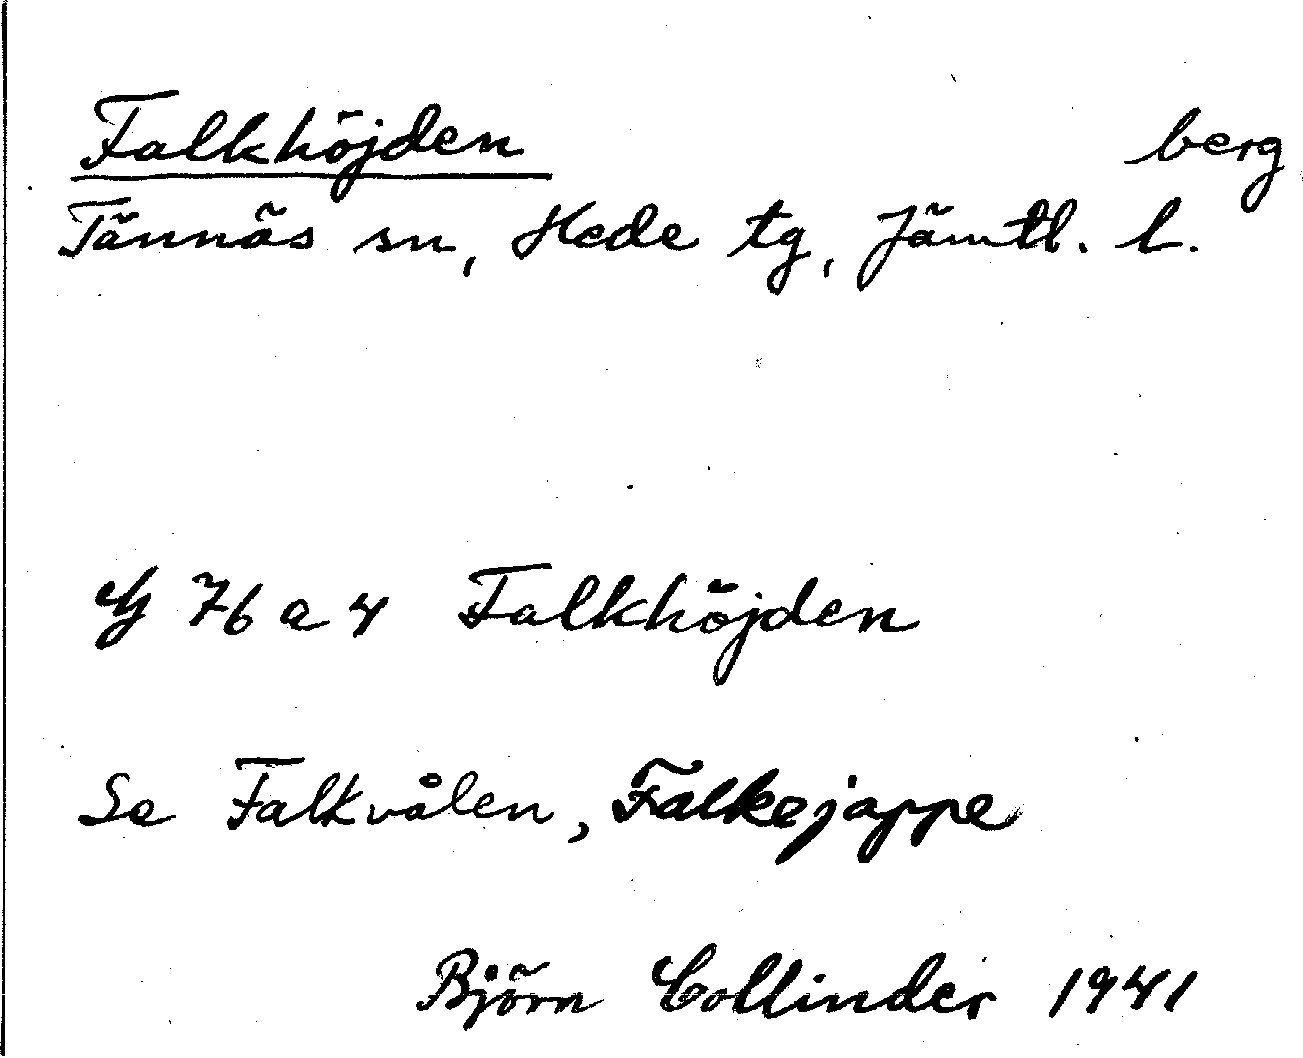 Falkhöjden berg
Tännäs sn, Hede tg, Jämtl. l.
76 a 4 Falkhöjden
Se Falkvålen, Falkejappe
Björn Collinder 1941